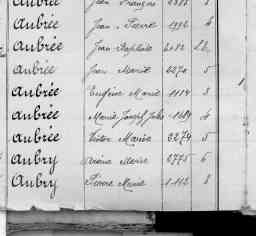 Aubrée Jean François
Aubrée Jean Pierre 1992
Aubrée Jean Baptiste 2082
Aubrée Jean Marie 2270 5
Aubrée Eugène Marie 1114 3
Aubrée Marie Joseph Jules 1684 4
Aubrée Victor Marie 3274 5
Aubry Marie 2775 6
Aubry Pierre Marie 1.112 8